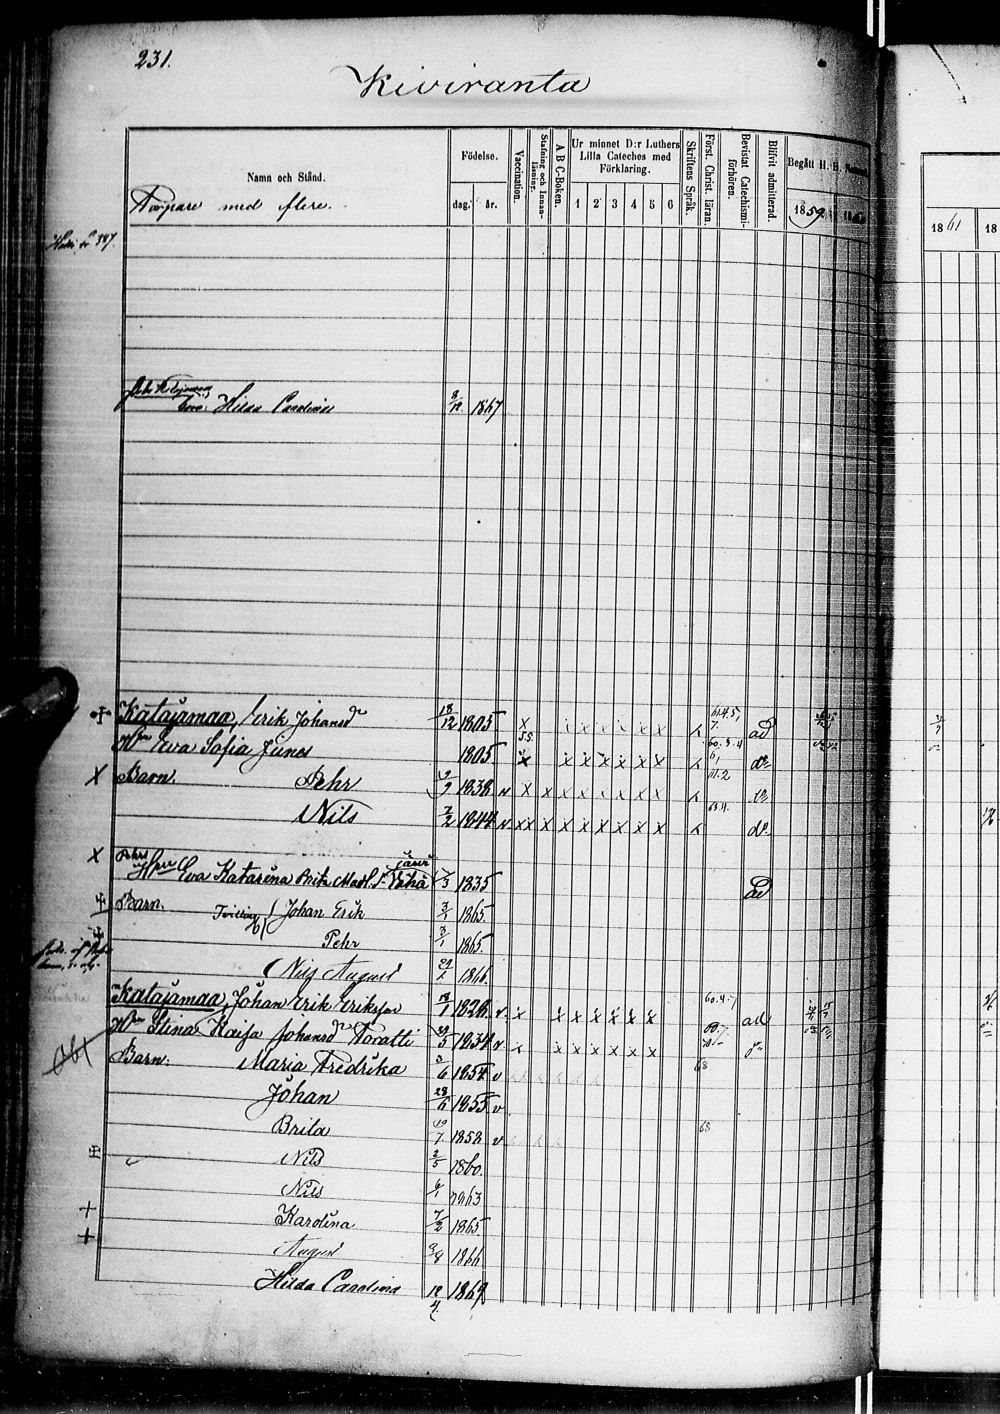 231.
Kiviranta
Namn och Stånd.
Födelse.
dag.
år.
Vaccination.
Stafning och Innan-läsning.
A B C-Boken.
Ur minnet D:r Luthers Lilla Cateches med Förklaring.
1 2 3 4 5 6
Skriftens Språk.
Först. Christ. läran.
Bevistat Catechismi-förhören.
Blifvit admitterad.
Begått H. H.
1859
1861
18
med flere.
Hilda Carolina 8/12 1867
Katajamaa, Erik Johansd 18/12 1805 ad
Hu Eva Sofia Junes 1805 do
Barn. Pehr 9 1838 v do
Nils 7/2 1844 v do
Pehrs Hu Eva Katarina Brita Matl. 1835 ad
Barn. Tvilling Johan Erik 3/1 1865.
Pehr 3/1 1865.
Nils August 29/1 1866.
Katajamaa, Johan Erik Eriksson 18/1 1828 v. ad
Hu Stina Kaisa Johansd Poratti 29/5 1834 v
Barn: Maria Fredrika 3/6 1854 v 68
Johan 28/6 1855 v
Brita 19/7 1858 v 68
Nils 2/5 1860.
Nils 6/1 1863
Karolina 7/2 1865.
August 3/8 1866
Hilda Carolina 12/4 1869
Obs